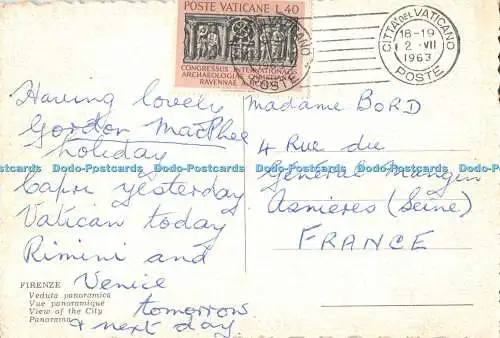 POSTE VATICANE L.40
CONGRESSUS INTERNATIONALIS
ARCHAEOLOGIAE CHRISTIANAE
RAVENNAE
CITTÀ DEL VATICANO
18-19
2 ·VII
1963
POSTE
Having lovely
Gordon MacPhee
holiday
Capri yesterday
Vatican today
Rimini and
Venice
tomorrow
& next day
Madame BORD
4 Rue du
Général Mangin
Asnieres (Seine)
FRANCE
Dodo-Postcards Dodo-Postcards Dodo-Postcards Dodo-Postcards Dodo-Postcards
FIRENZE
Veduta panoramica
Vue panoramique
View of the City
Panorama